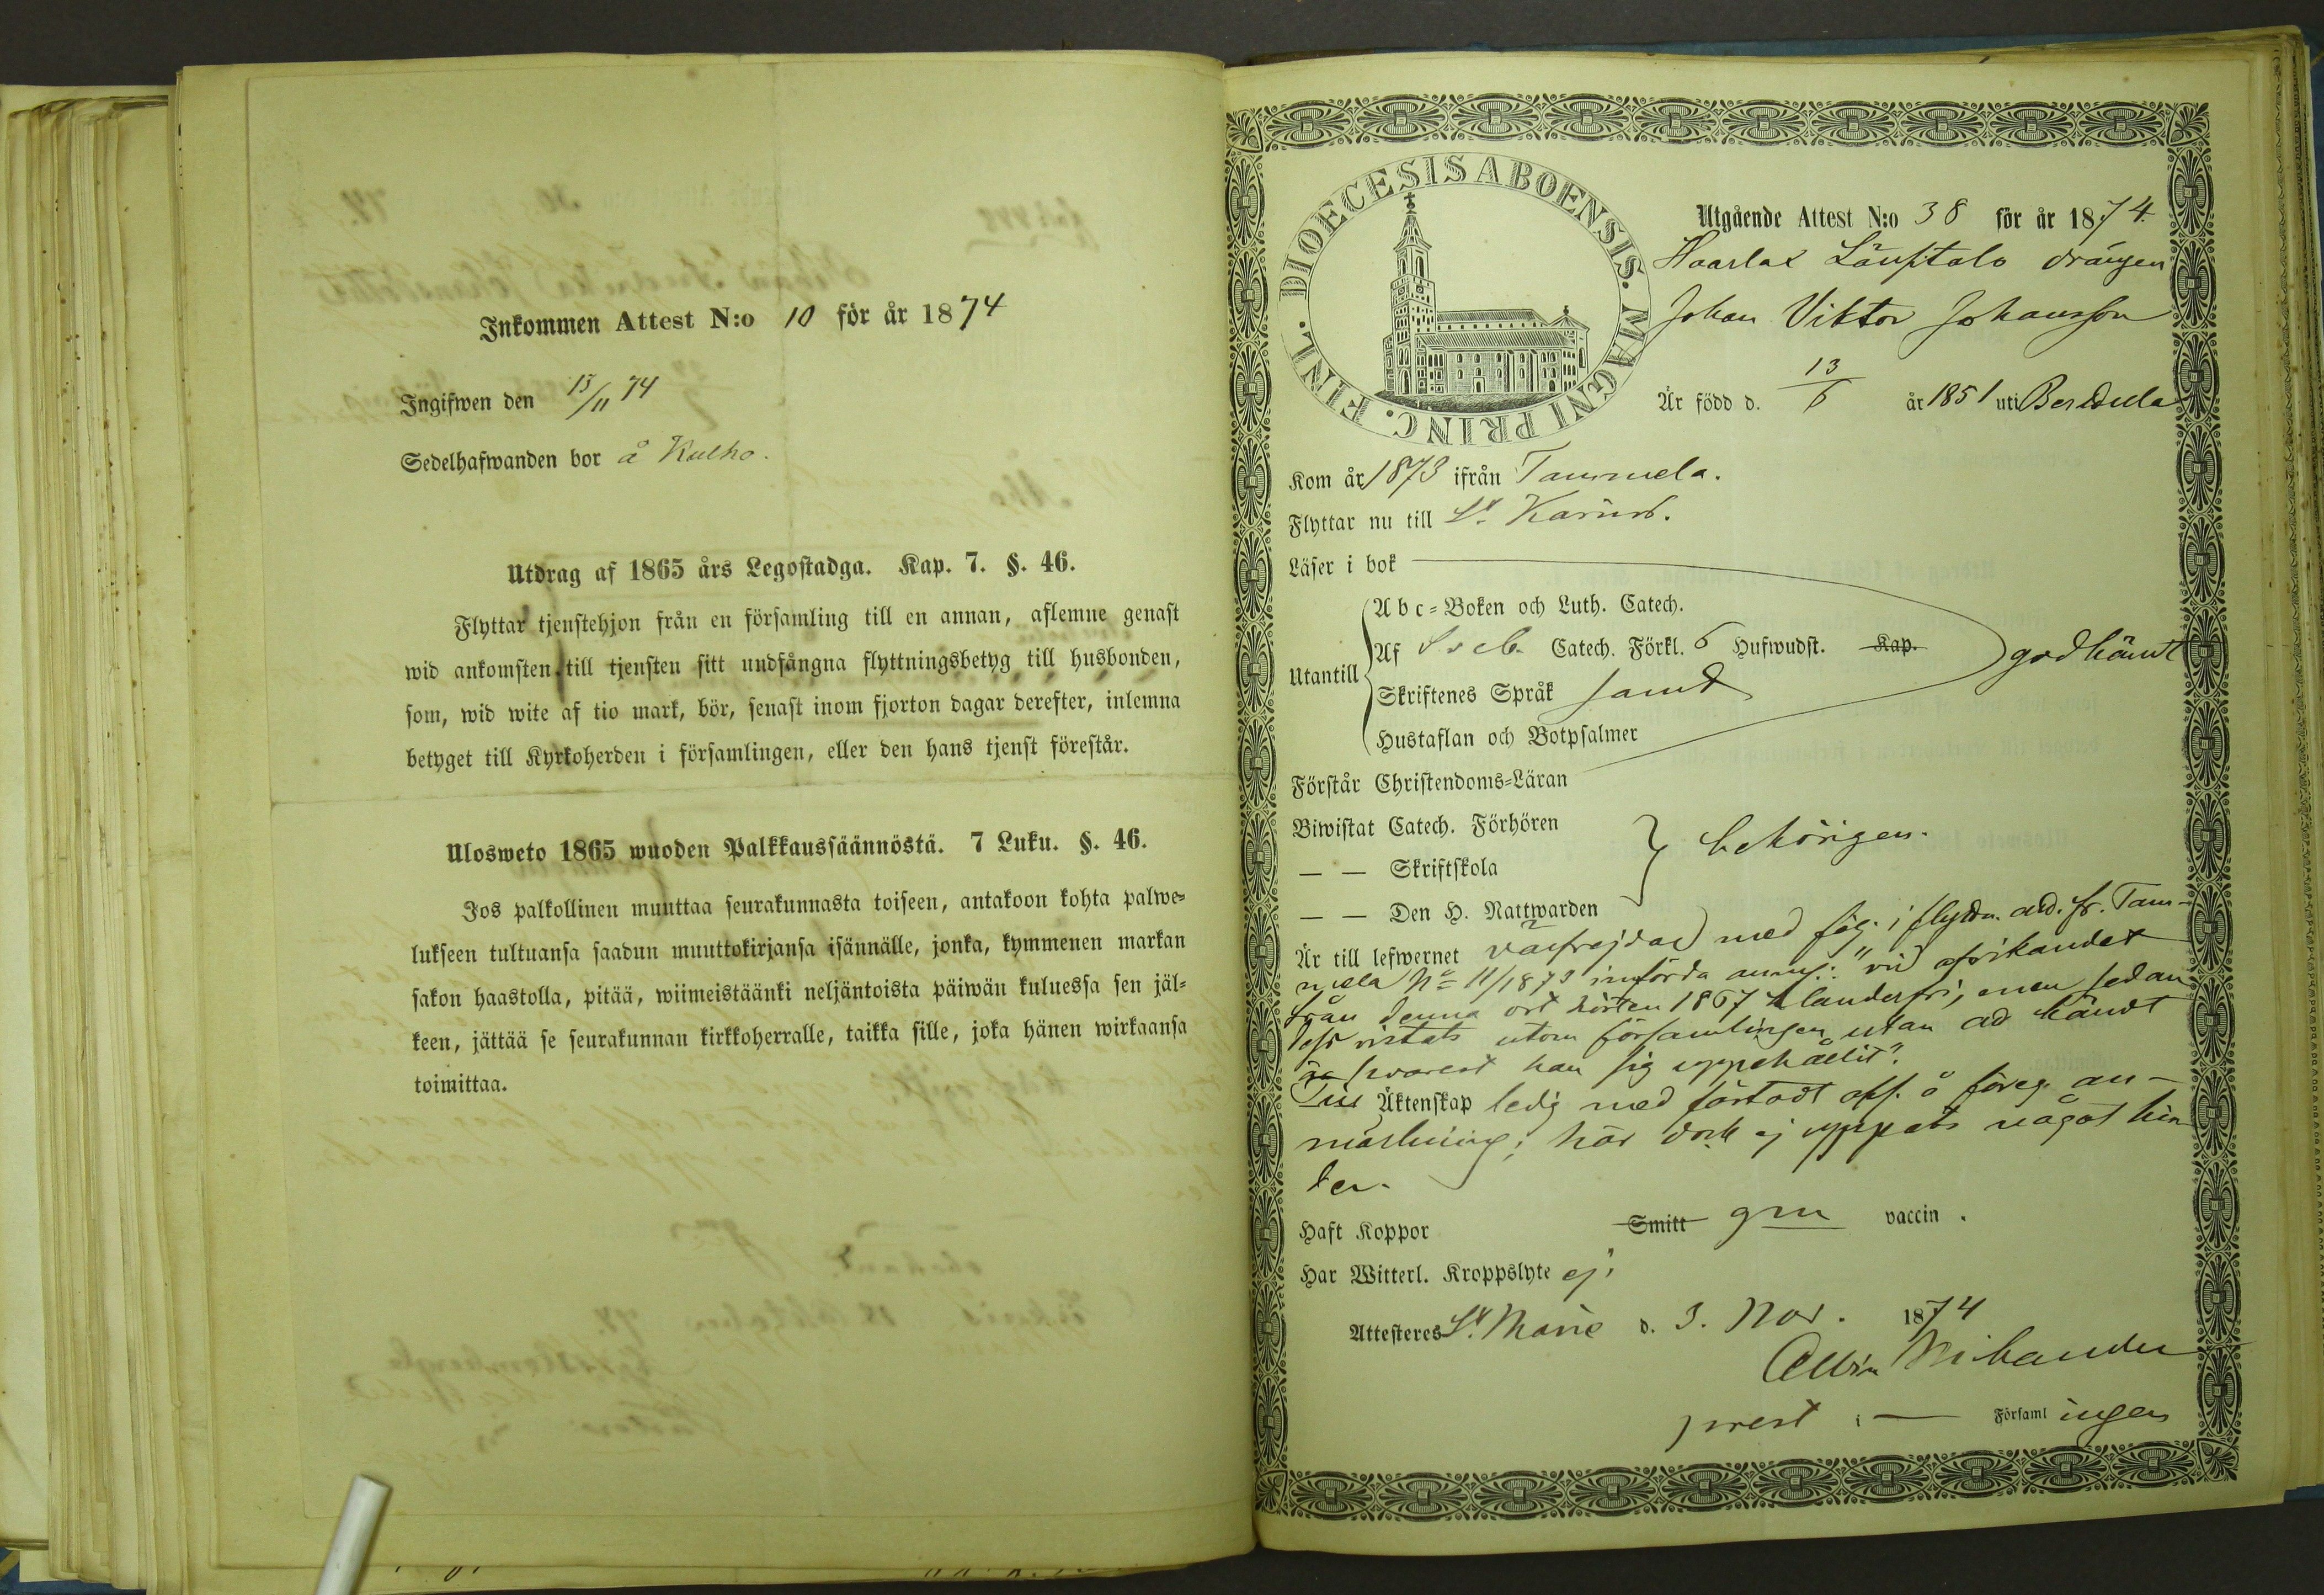 Inkommen Attest N:o 10 för år 1874
Ingifwen den 13/11 74
Sedelhafwanden bor å Kulho.
Utdrag af 1865 års Legostadga. Kap. 7. §. 46.
Flyttar tjenstehjon från en församling till en annan, aflemne genast
wid ankomsten till tjensten sitt undfångna flyttningsbetyg till husbonden,
som, wid wite af tio mark, bör, senast inom fjorton dagar derefter, inlemna
betyget till Kyrkoherden i församlingen, eller den hans tjenst förestår.
Ulosweto 1865 wuoden Palkkaussäännöstä. 7 Luku. §. 46.
Jos palkollinen muuttaa seurakunnasta toiseen, antakoon kohta palwe-
lukseen tultuansa saadun muuttokirjansa isännälle, jonka, kymmenen markan
sakon haastolla, pitää, wiimeistäänki neljäntoista päiwän kuluessa sen jäl-
keen, jättää se seurakunnan kirkkoherralle, taikka sille, joka hänen wirkaansa
toimittaa.
FINL. DIOECESIS ABOENSIS. MAGNI PRINC.
Utgående Attest N:o 38 för år 1874.
drängen
Johan Viktor Johansson
Är född d. 13/6 år 1851 uti
Kom år 1873 ifrån Tammela.
Flyttar nu till St. Karins.
Läser i bok
Abc-Boken och Luth. Catech.
Utantill Af Sveb. Catech. Förkl. 6 Hufwudst. Kap. godkändt
Skriftenes Språk samt
Hustaflan och Botpsalmer
Förstår Christendoms-Läran
Biwistat Catech. Förhören
— — Skriftskola behörigen.
— — Den H. Nattwarden
Är till lefwernet välfrejdad med följ. i flyttn. att. fr. Tam-
mela No 11/1873 införda anm.: "vid afvikandet
från denna ort hösten 1867 klanderfri, men sedan
dess vistats utom församlingen utan att kändt
är hvarest han sig uppehållit".
Till Äktenskap ledig med fästadt afs. å föreg. an-
märkning; här dock ej yppats något hin
der.
Haft Koppor Smitt gm vaccin.
Har Witterl. Kroppslyte ej.
Attesteres St. Marie d. 3. Nov. 1874
Albin
prest i — Församlingen